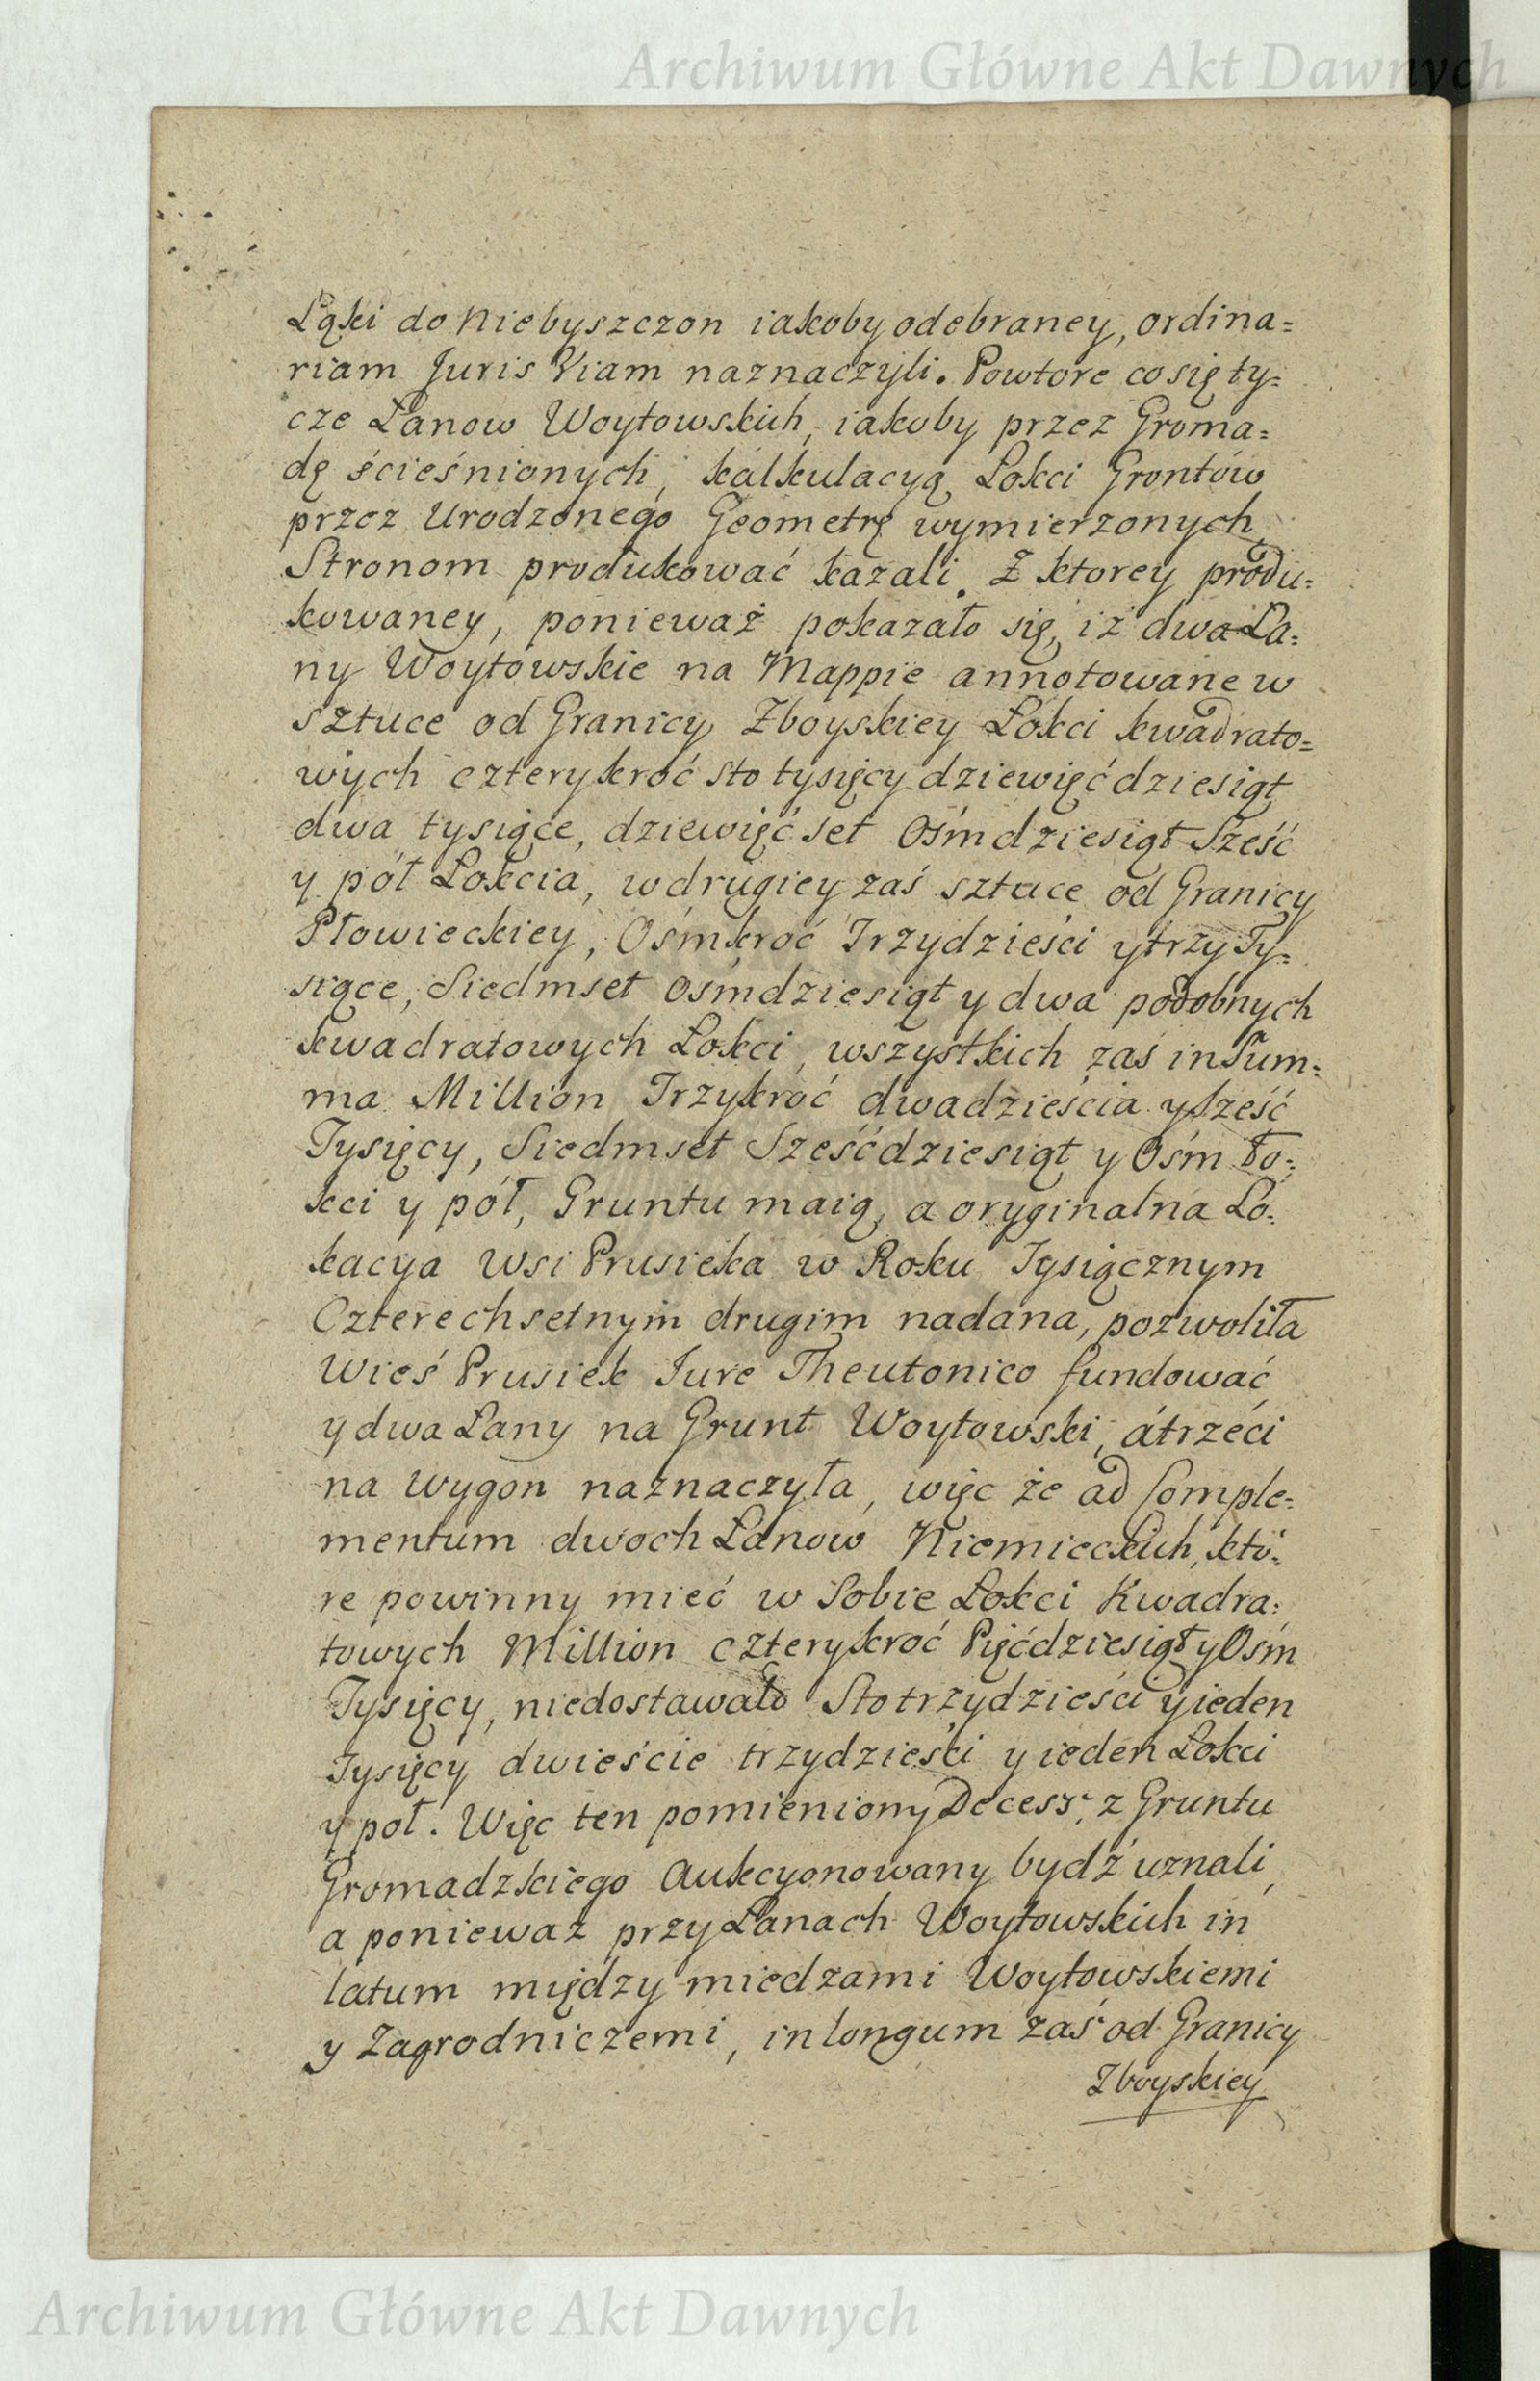 Archiwum Główne Akt Dawnych
Łąki do Niebyszczon iakoby odebraney, ordina=
riam Juris Viam naznaczyli. Powtore co się ty=
cze Łanow Woytowskich, iakoby przez Groma=
dę ścieśnionych, kálkulacyą Łokci Grontów
przez Urodzonego Geometrę wymierzonych
Stronom produkować kazali. Z ktorey produ=
kowaney, ponieważ pokazało się, iż dwa Ła=
ny Woytowskie na Mappie annotowane w
sztuce od Granicy Zboyskiey Łokci kwadrato=
wych czterykroć sto tysięcy dziewięćdziesiąt
dwa tysiące, dziewięćset Ośmdziesiąt Sześć
y pół Łokcia, w drugiey zaś sztuce od Granicy
Płowieckiey, Ośmkroć Trzydzieści y trzy Ty=
siące, Siedmset ośmdziesiąt y dwa podobnych
kwadratowych Łokci, wszystkich zaś in Sum=
ma Million Trzykroć dwadzieścia y Sześć
Tysięcy, Siedmset Sześćdziesiąt y Ośm Ło=
kci y pół, Gruntu maią, a oryginalna Lo=
kacya Wsi Prusieka w Roku Tysiącznym
Czterechsetnym drugim nadana, pozwoliła
Wieś Prusiek Jure Theutonico fundować
y dwa Łany na Grunt Woytowski, á trzeci
na wygon naznaczyła, więc że ad Comple=
mentum dwoch Łanow Niemieckich, któ=
re powinny mieć w Sobie Łokci Kwadra=
towych Million czterykroć Pięćdziesiąt y Ośm
Tysięcy, niedostawało Sto trzydzieści y ieden
Tysięcy dwieście trzydzieści y ieden Łokci
y poł. Więc ten pomieniony Decess, z Gruntu
Gromadzkiego Aukcyonowany bydź uznali,
a ponieważ przy Łanach Woytowskich in
latum między miedzami Woytowskiemi
y Zagrodniczemi, in longum zaś od Granicy
Zboyskiey
Archiwum Główne Akt Dawnych